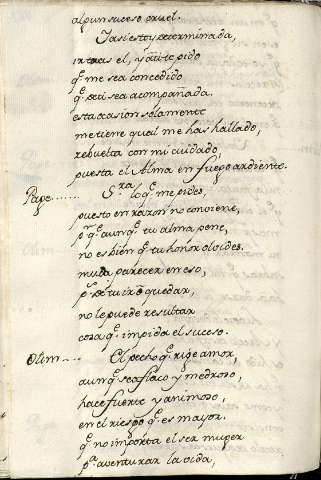 algun suceso cruel.
Iasi estoy determinada,
ir tras el, y aun te pido
q̃. me sea concedido
q̃. de ti sea acompañada.
esta ocasion solamente
me tiene qual me has hallado,
rebuelta con mi cuidado,
puesta el Alma en fuego ardiente.
Page...... S.ra lo q̃. me pides,
puesto en razon no conviene,
p.r q̃. aunq̃. tu alma pene,
no es bien q̃. tu honor olvides.
muda parecer en eso,
no le puede resultar
cosa q̃. impida el suceso.
Olim..... El pecho q̃. rige amor,
aunq̃. sea flaco y medroso,
hace fuerte y animoso,
en el riesgo q̃. es mayor.
q̃. no importa el ser muger
p.a aventurar la vida,